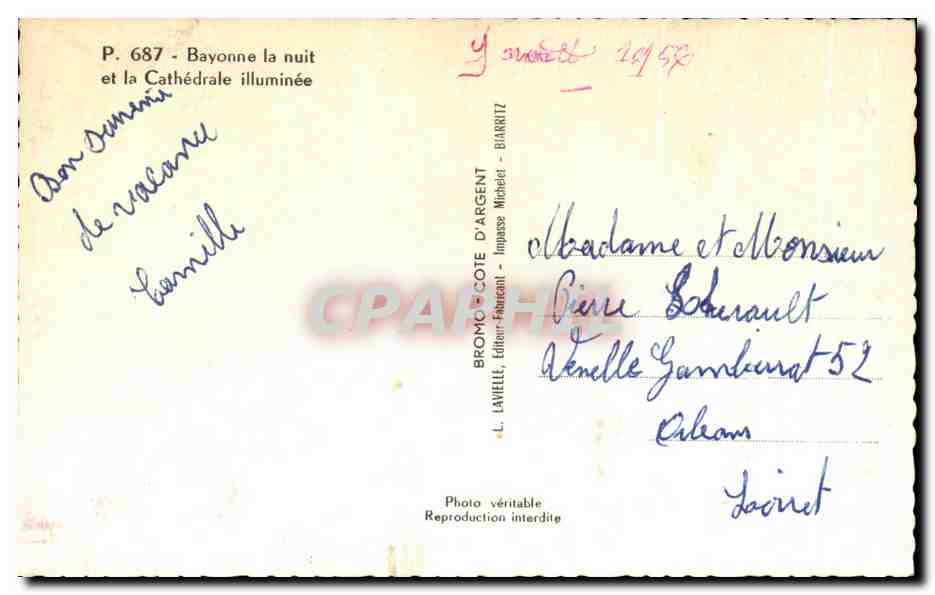 P. 687 - Bayonne la nuit
et la Cathédrale illuminée
1957
Bon Souvenir
de vacance
Camille
BROMO - COTE D'ARGENT
L. LAVIELLE, Editeur-Fabricant - Impasse Michelet - BIARRITZ
Madame et Monsieur
Pierre
Venelle 52
Orleans
Loiret
CPAPHIL
Photo véritable
Reproduction interdite